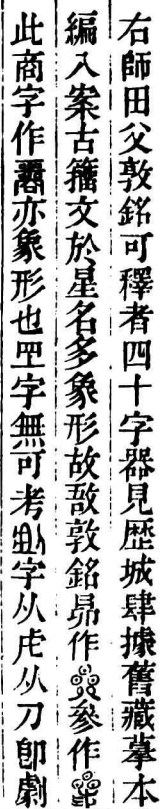 右師田父敦銘可釋者四十字器見歴城肆據舊藏摹本
編入案古籀文於星名多象形故敔敦銘昴作參作
此商字作亦象形也字無可考字从虍从刀卽劇